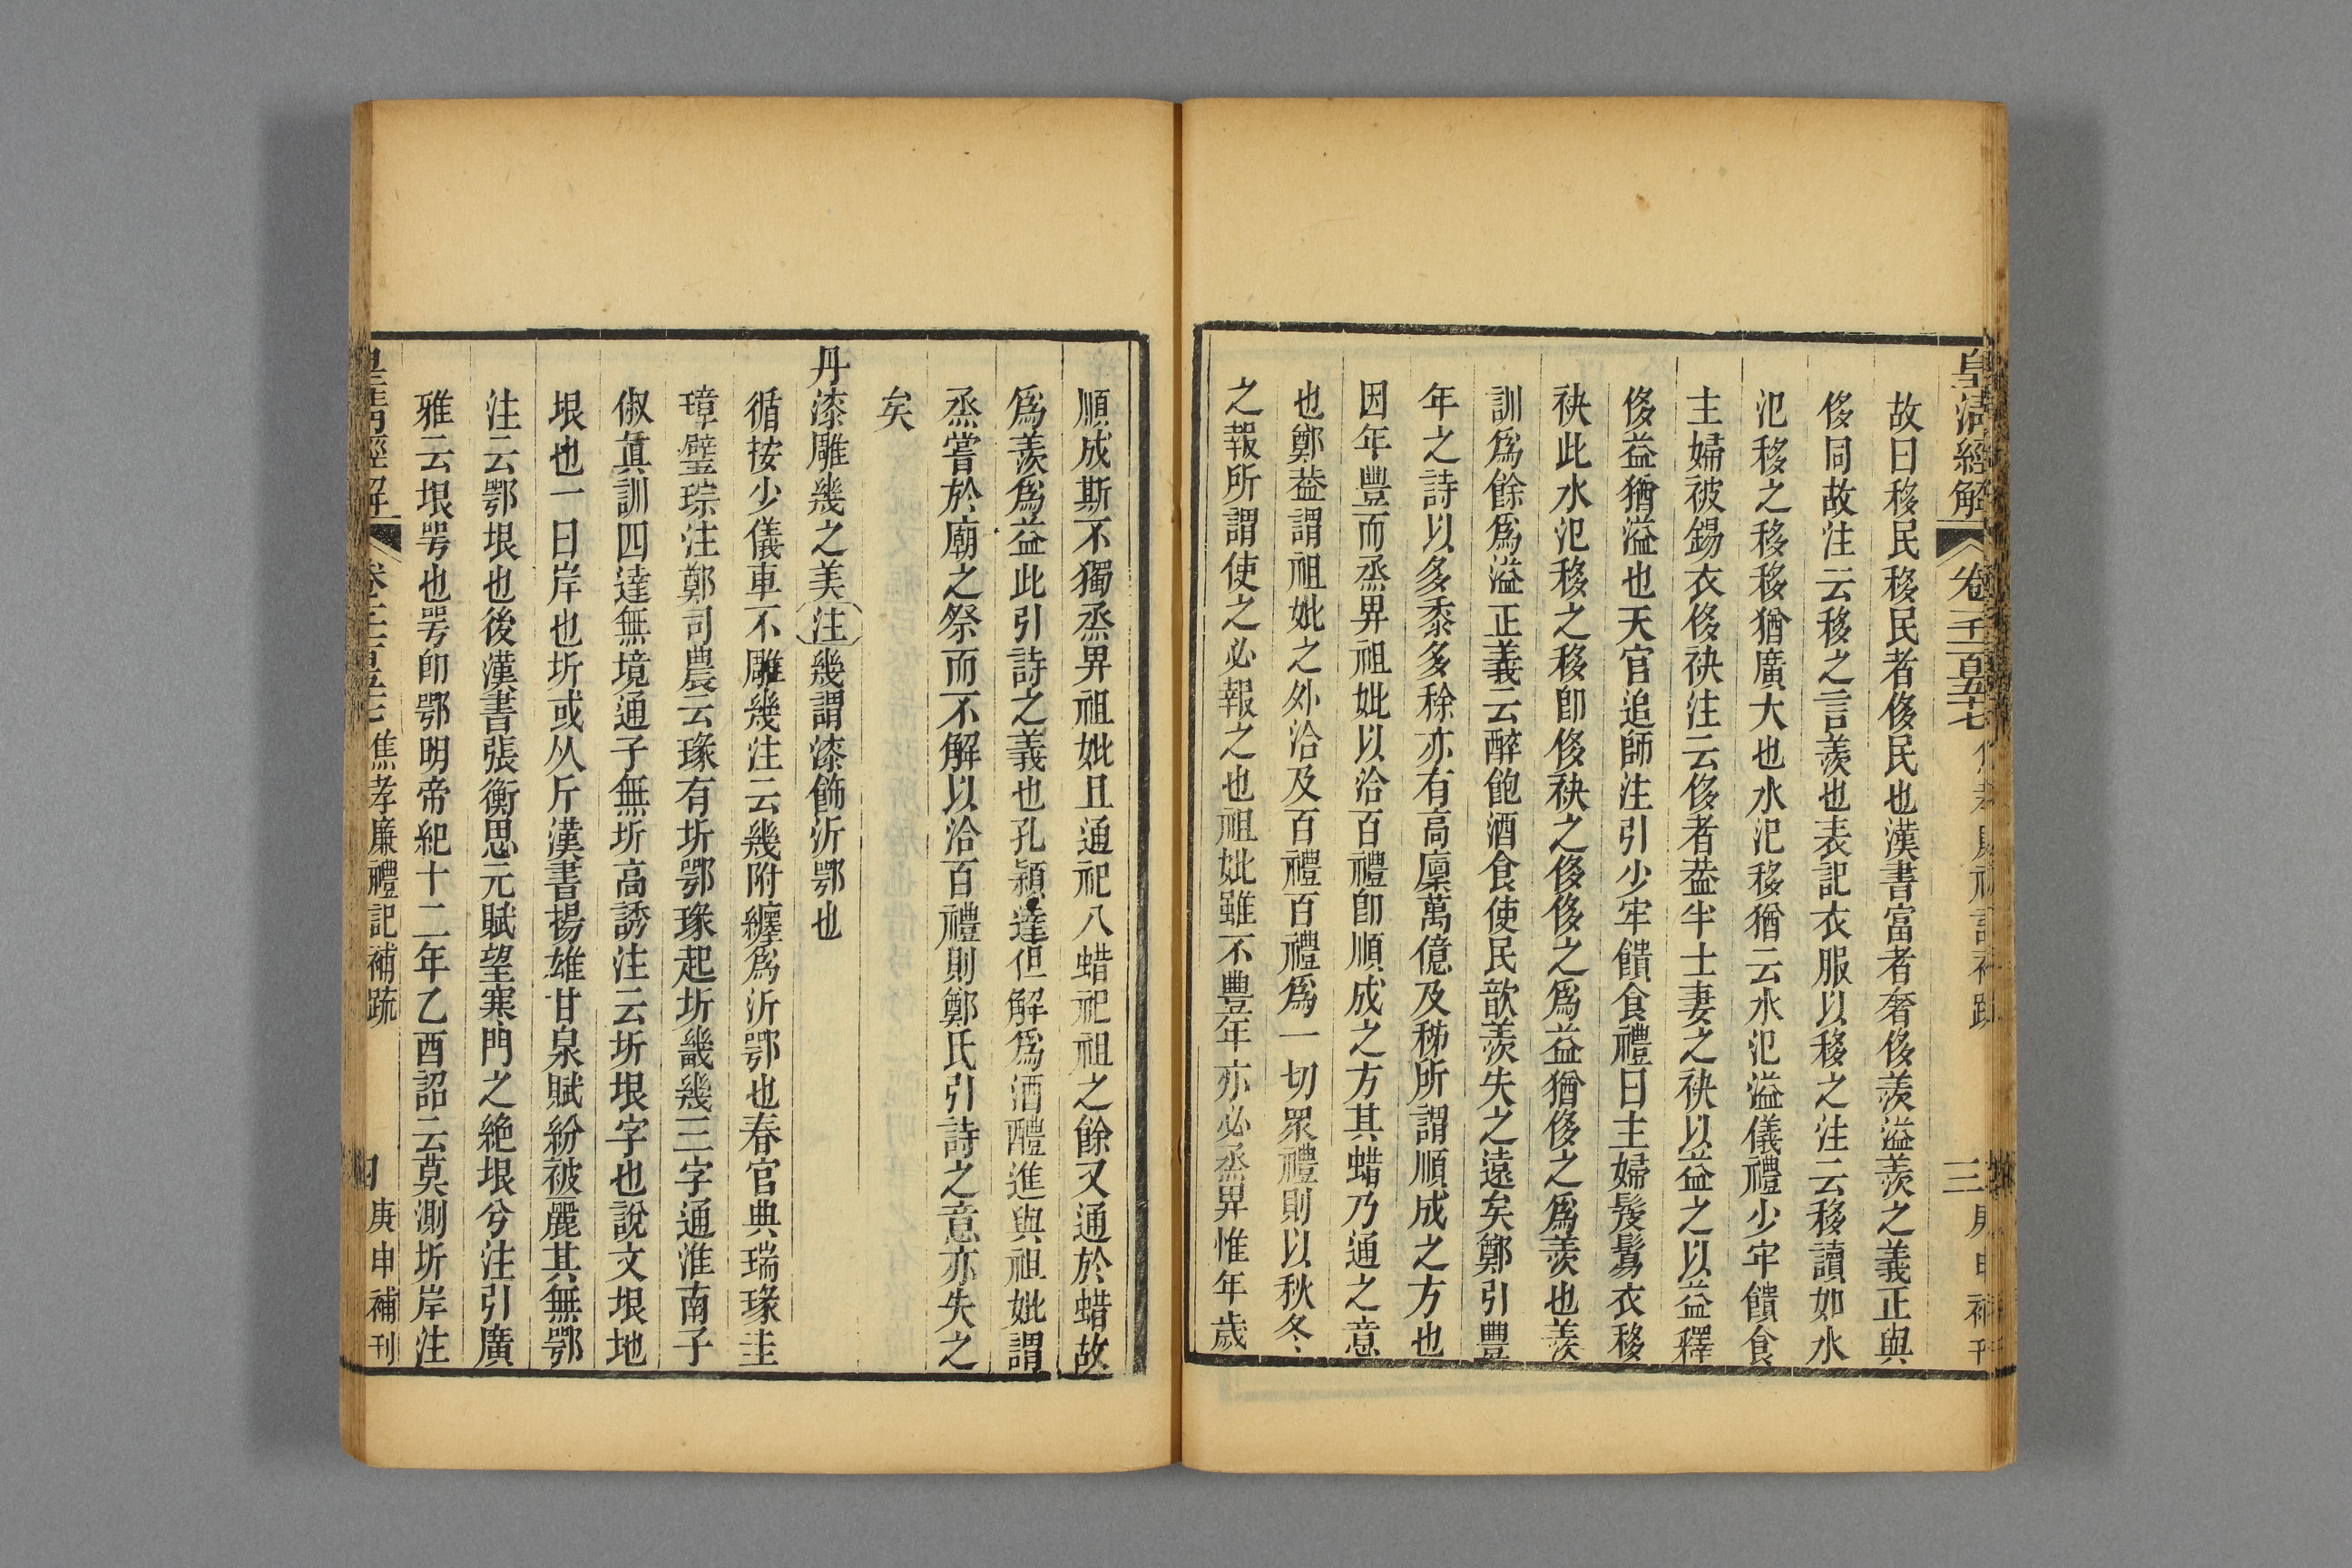 皇清經解 卷一千一百五十七 三
故曰移民移民者侈民也漢書富者奢侈羨溢羨之義正與
侈同故注云移之言羨也表記衣服以移之注云移讀如水
氾移之移移猶廣大也水氾移猶云水氾溢儀禮少牢饋食
主婦被錫衣侈袂注云侈者葢半士妻之袂以益之以益釋
侈益猶溢也天官追師注引少牢饋食禮曰主婦髲鬄衣移
袂此水氾移之移卽侈袂之侈侈之爲益猶侈之爲羨也羨
訓爲餘爲溢正義云醉飽酒食使民歆羨失之遠矣鄭引豐
年之詩以多黍多稌亦有高廩萬億及秭所謂順成之方也
因年豐而烝畀祖妣以洽百禮卽順成之方其蜡乃通之意
也鄭葢謂祖妣之外洽及百禮百禮爲一切眾禮則以秋冬
之報所謂使之必報之也祖妣雖不豐年亦必烝畀惟年歲
順成斯不獨烝畀祖妣且通祀八蜡祀祖之餘又通於蜡故
爲羨爲益此引詩之義也孔穎達但解爲酒醴進與祖妣謂
烝嘗於廟之祭而不解以洽百禮則鄭氏引詩之意亦失之
矣
丹漆雕幾之美注幾謂漆飾沂鄂也
循按少儀車不雕幾注云幾附纏爲沂鄂也春官典瑞瑑圭
璋璧琮注鄭司農云瑑有圻鄂瑑起圻畿幾三字通淮南子
俶眞訓四達無境通子無圻高誘注云圻垠字也說文垠地
垠也一曰岸也圻或从斤漢書揚雄甘泉賦紛被麗其無鄂
注云鄂垠也後漢書張衡思元賦望寒門之絶垠兮注引廣
雅云垠咢也咢卽鄂明帝紀十二年乙酉詔云莫測圻岸注
皇清經解 焦孝廉禮記補疏 四 庚申補刊